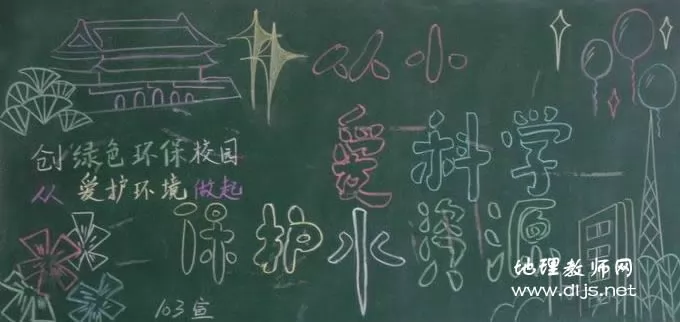 从小
爱科学
创绿色环保校园
从爱护环境做起
保护水资源
103宣
地理教师网
www.dljs.net